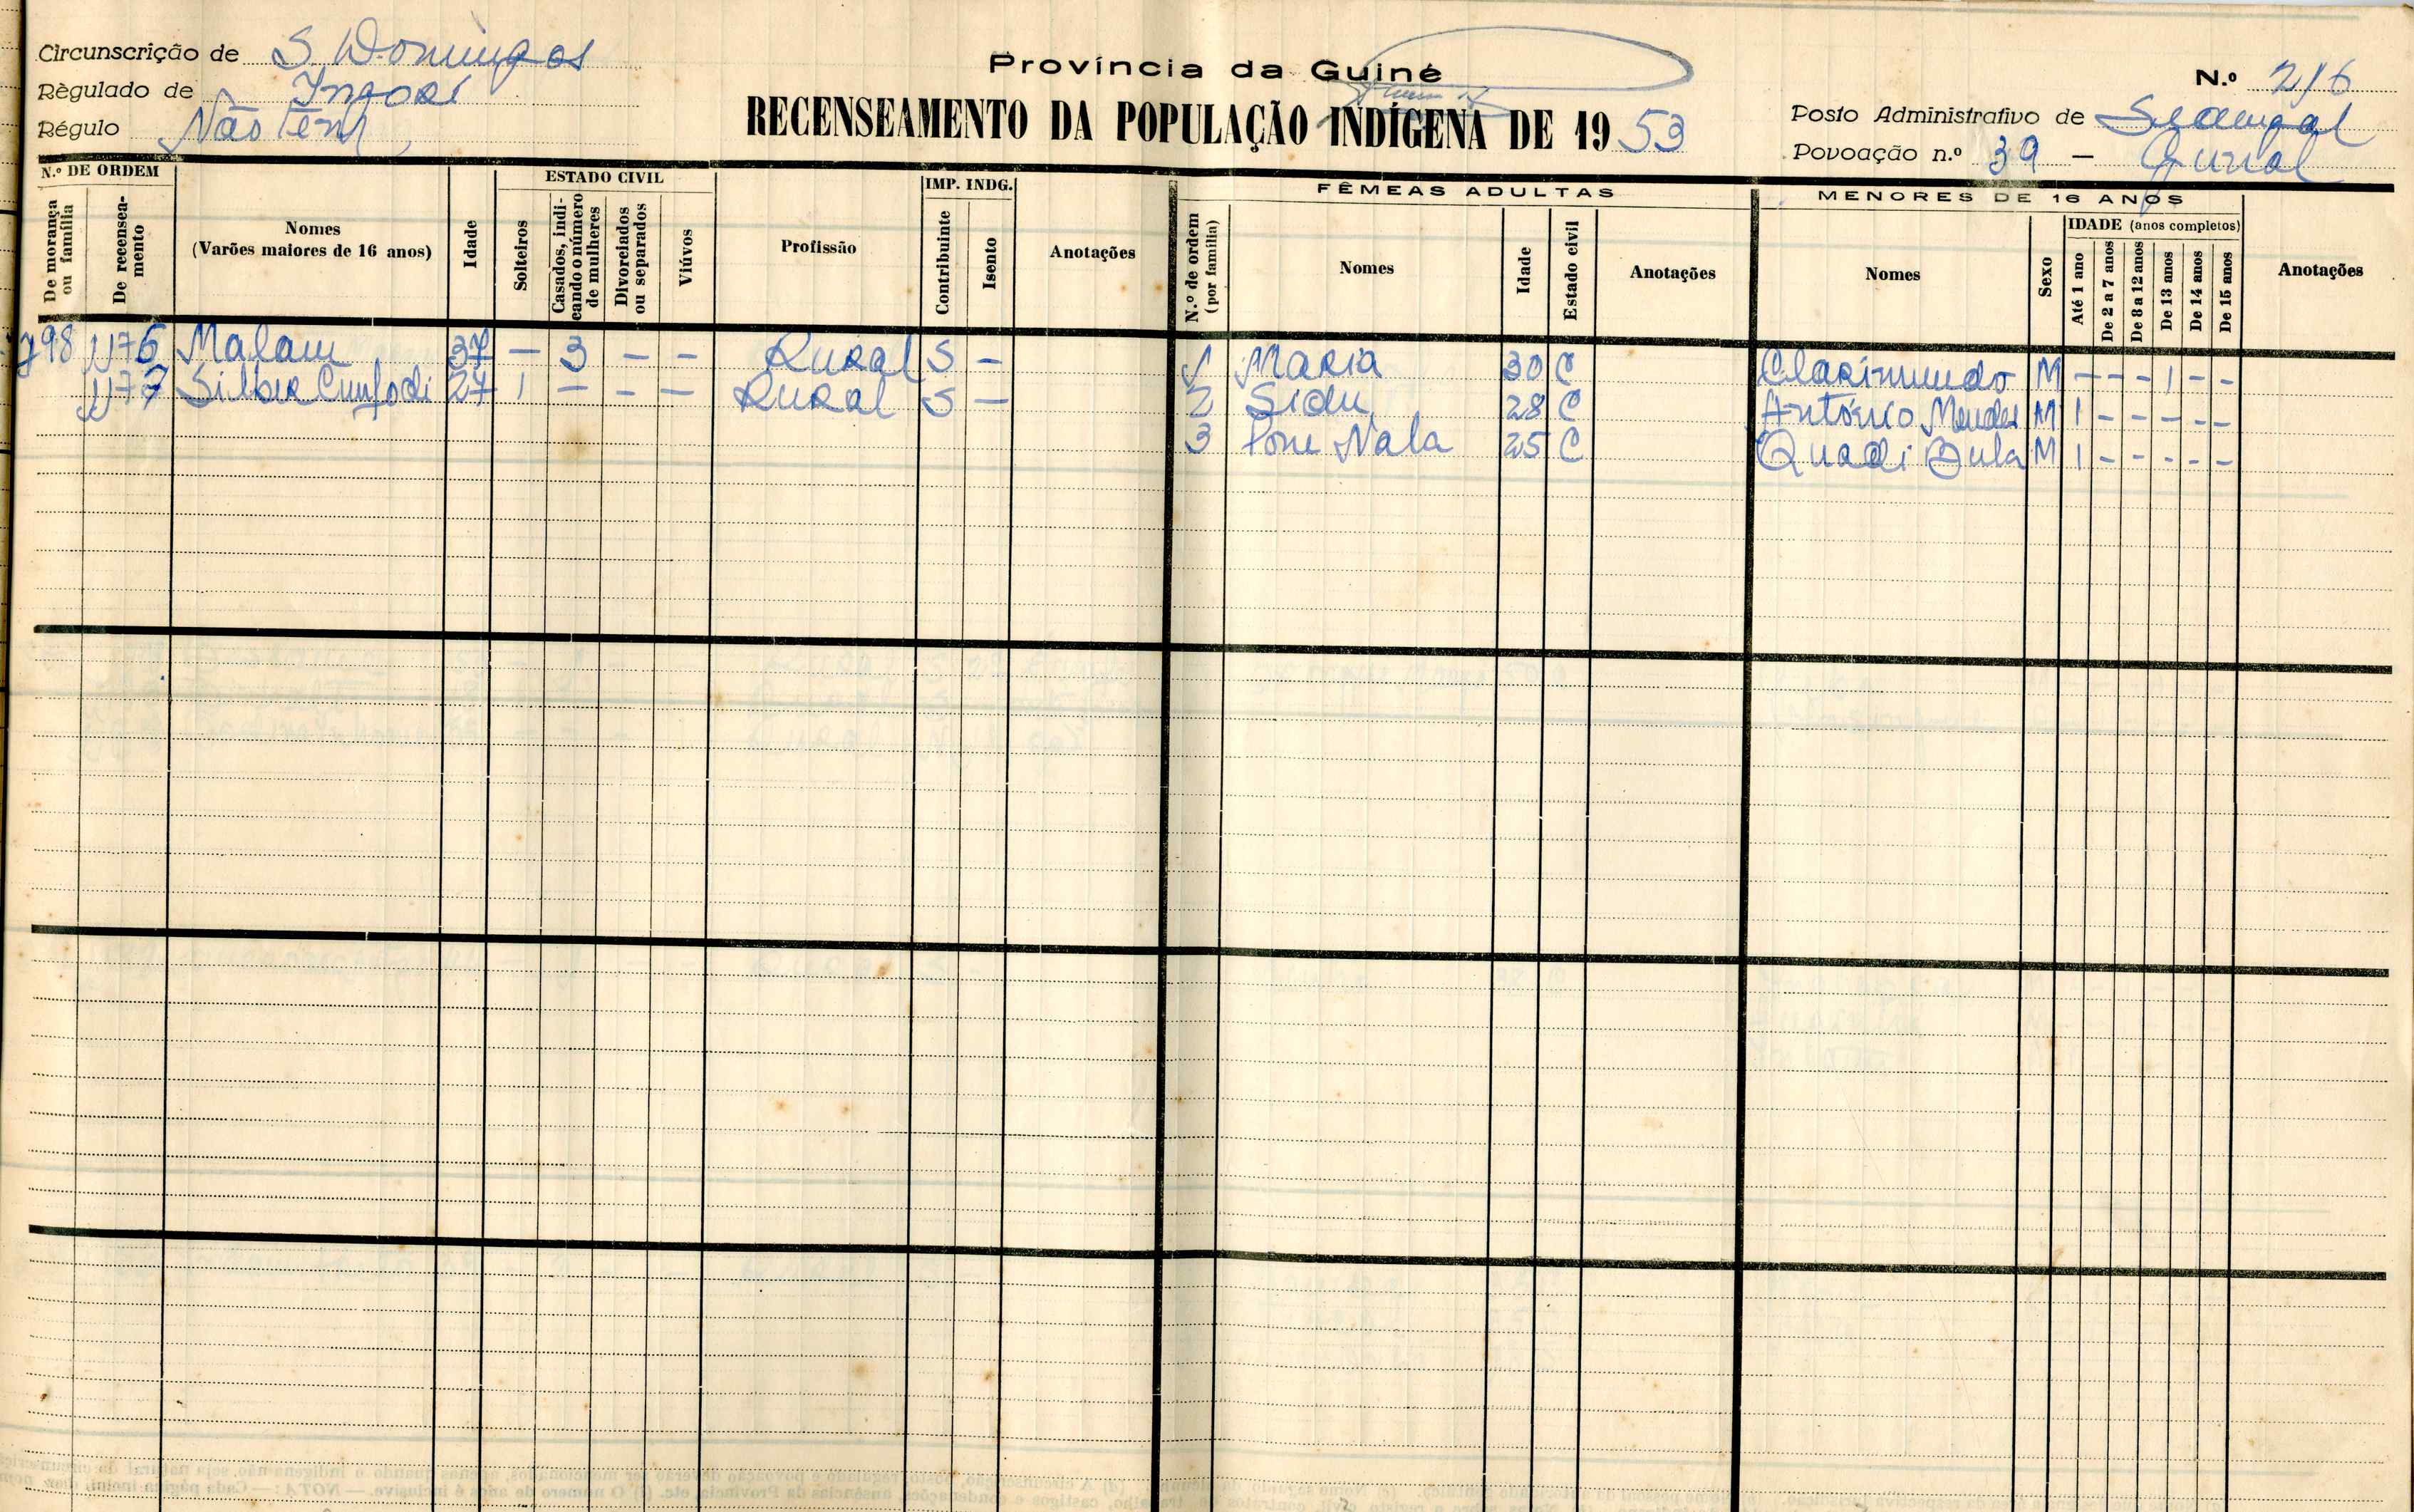 Circunscrição de S. Domingos
Règulado de Ingoré
Régulo Não tem,
Província da Guiné
RECENSEAMENTO DA POPULAÇÃO INDÍGENA DE 1953
N.º 216
Posto Administrativo de Sedengal
Povoação n.º 39 -
N.º DE ORDEM
De morança ou família
De recenseamento
Nomes
(Varões maiores de 16 anos)
Idade
ESTADO CIVIL
Solteiros
Casados, indicando o número de mulheres
Divorciados ou separados
Viúvos
Profissão
IMP. INDG.
Contribuinte
Isento
Anotações
FÊMEAS ADULTAS
N.º de ordem (por família)
Nomes
Idade
Estado civil
Anotações
MENORES DE 16 ANOS
Nomes
Sexo
IDADE (anos completos)
Até 1 ano
De 2 a 7 anos
De 8 a 12 anos
De 13 anos
De 14 anos
De 15 anos
Anotações
798 1176 Malam 37 - 3 - - Rural S - 1 Maria 30 C Clarimundo M - - - 1 - -
1177 27 1 - - - Rural S - 2 Sidu 28 C António Mendes M 1 - - - - -
3 Nala 25 C Quadi M 1 - - - - -